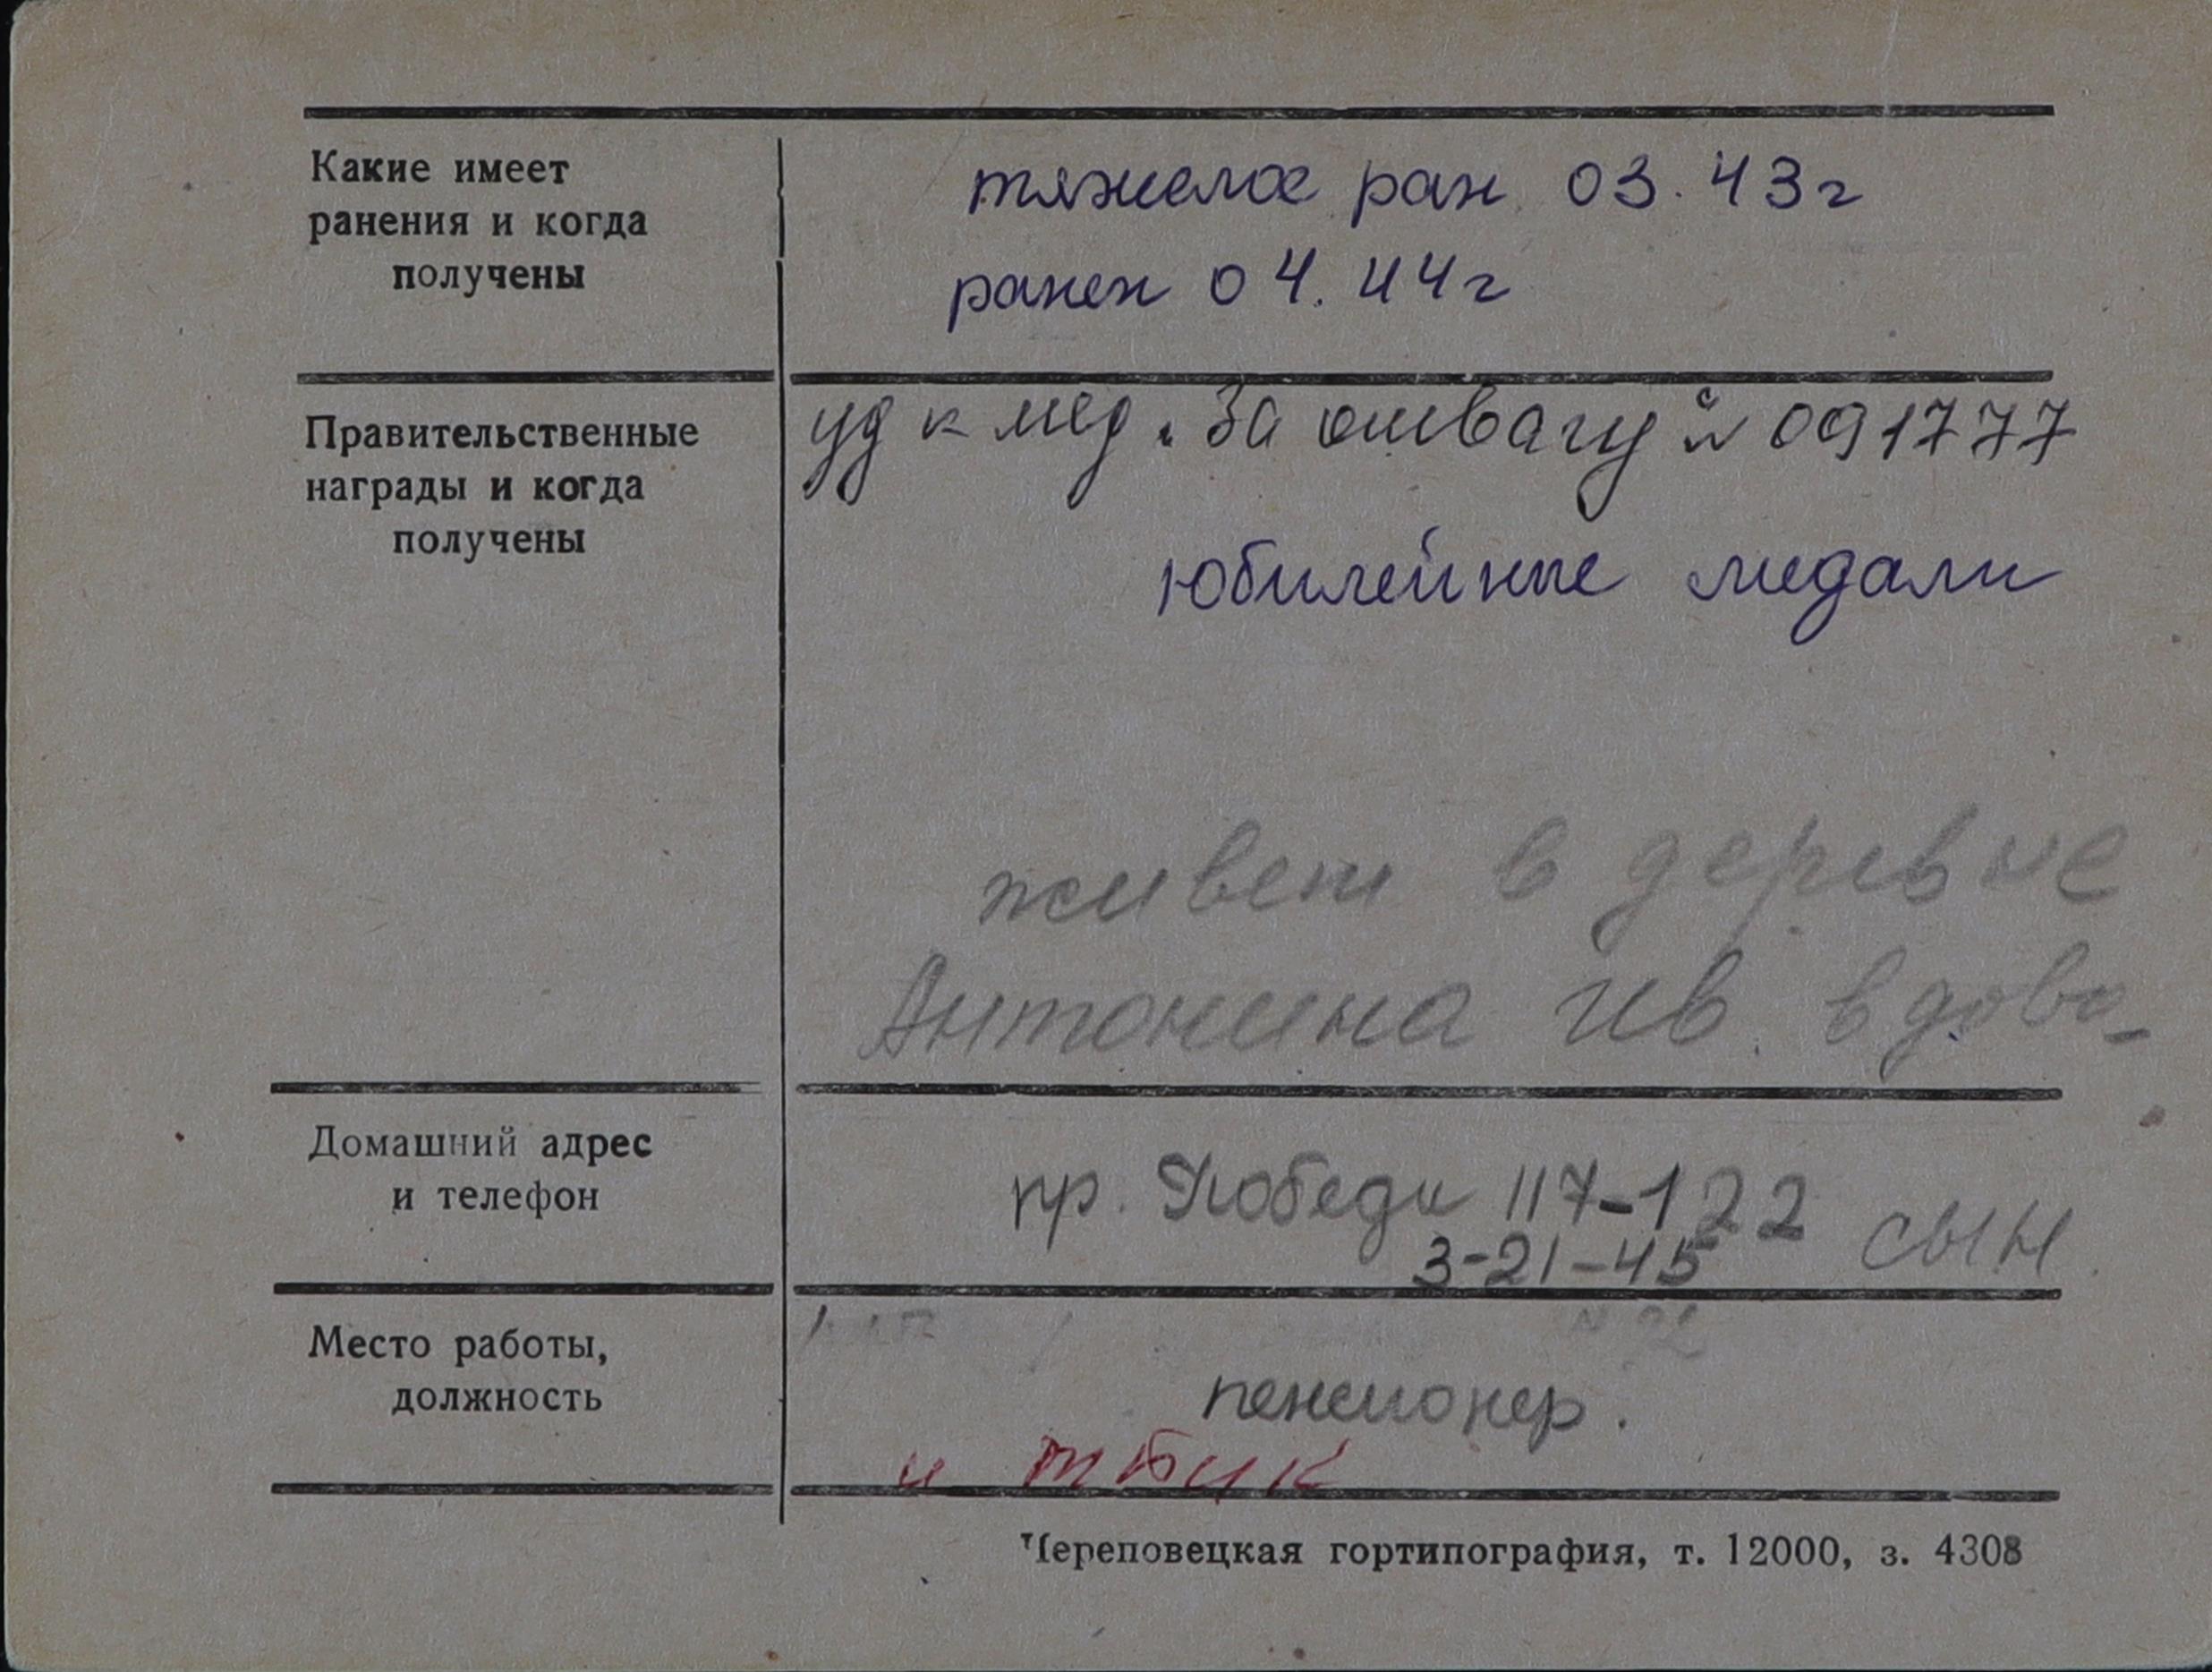 Какие имеет
ранения и когда
получены
тяжелое ран. 03.43г
ранен 04.44г
Правительственные
награды и когда
получены
уд к мед. "За отвагу" № 091777
юбилейные медали
живет в деревне
Антонина Ив. вдова
Домашний адрес
и телефон
пр. Победы 117-122 сын
3-21-45
Место работы,
должность
пенсионер.
и
Череповецкая гортипография, т. 12000, з. 4308